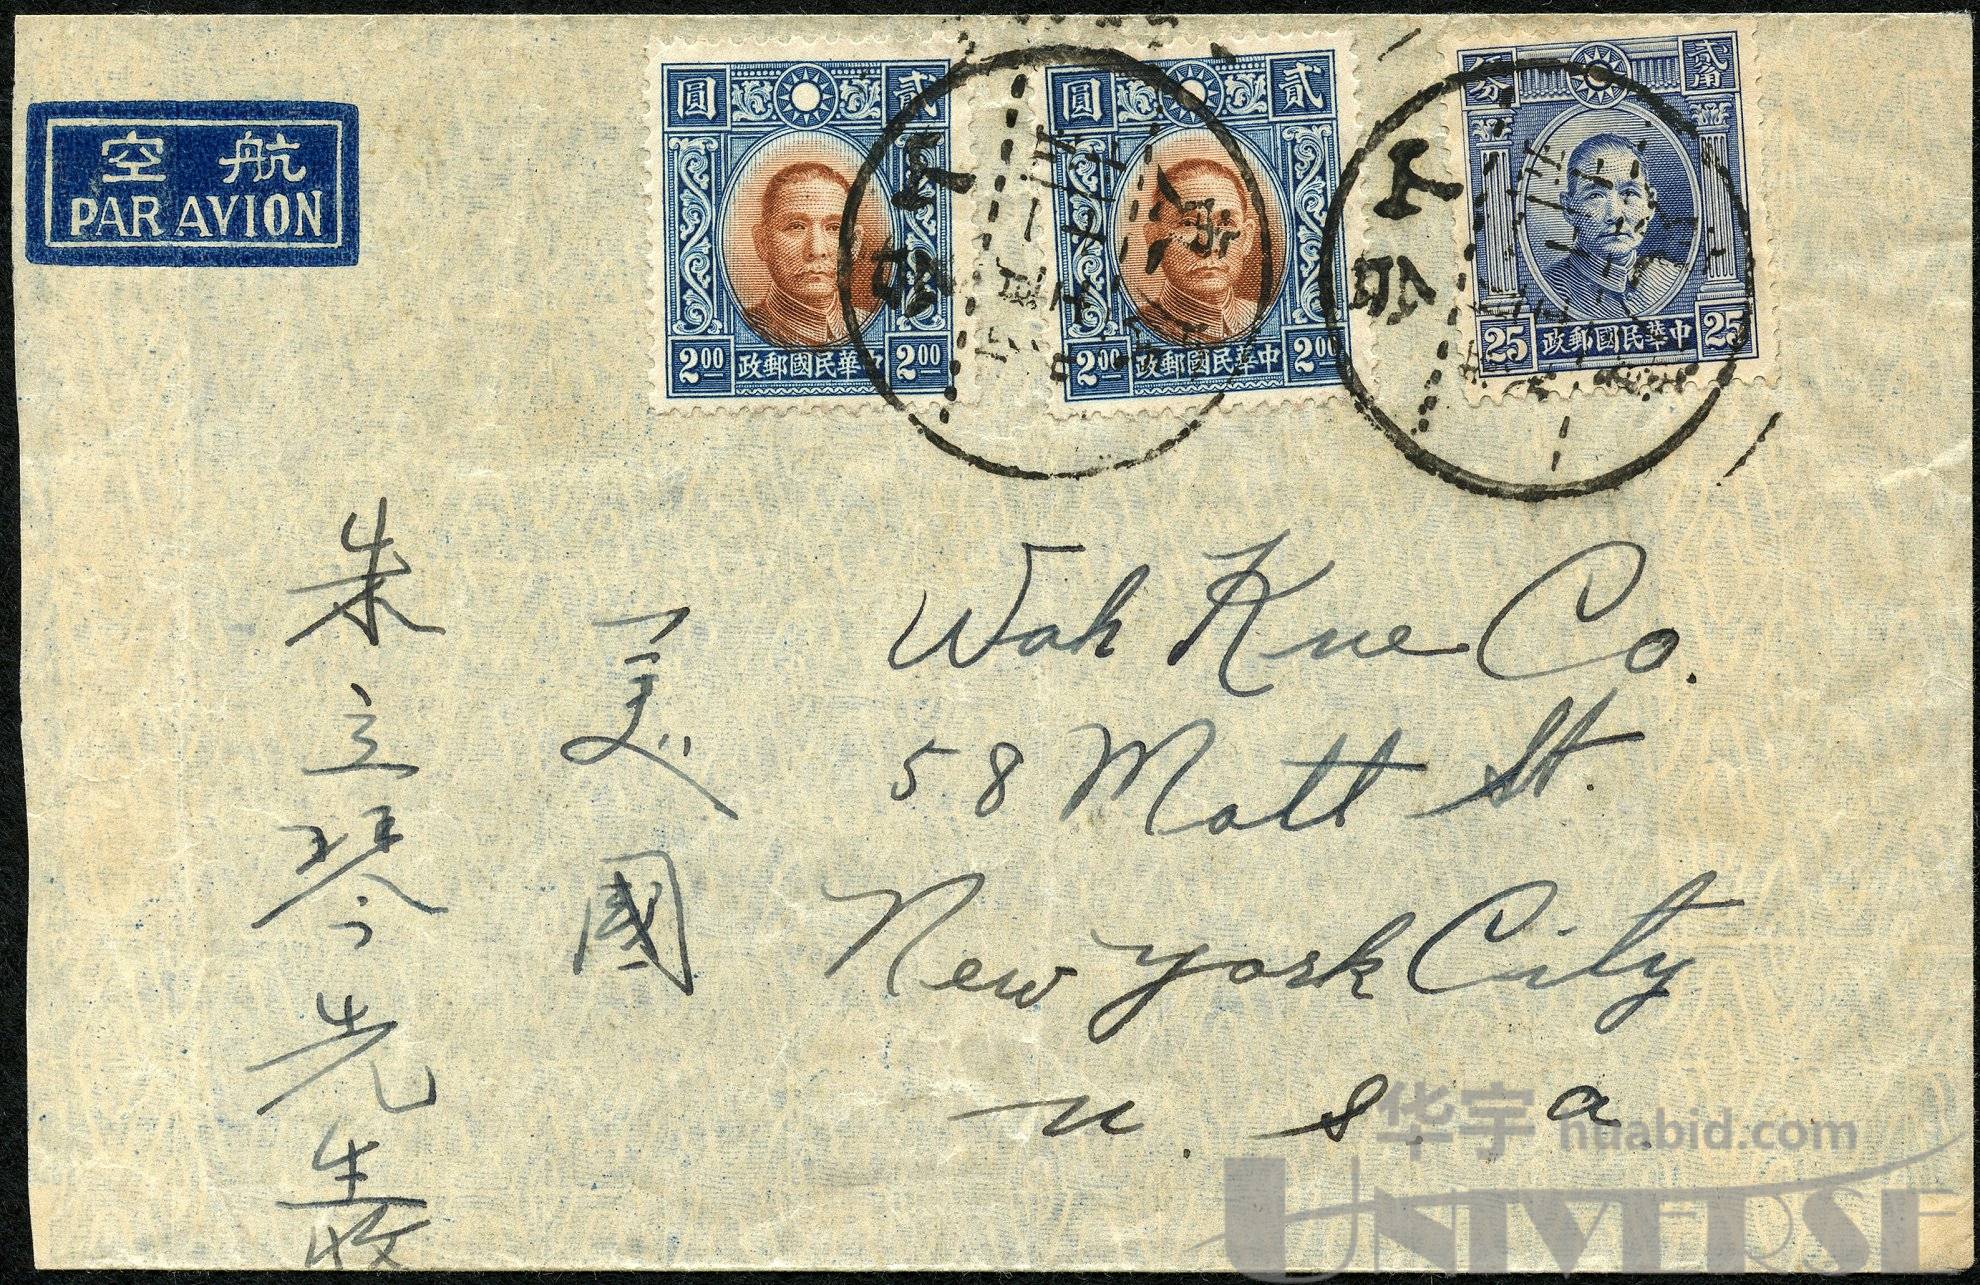 航空
PAR AVION
圓 貳
2.00 中華民國郵政 2.00
圓 貳
2.00 中華民國郵政 2.00
伍分 貳角
25 中華民國郵政 25
Wah Kue Co.
58 Mott St.
New York City
U. S. A
美國
朱立琴先生收
华宇 huabid.com
UNIVERSE